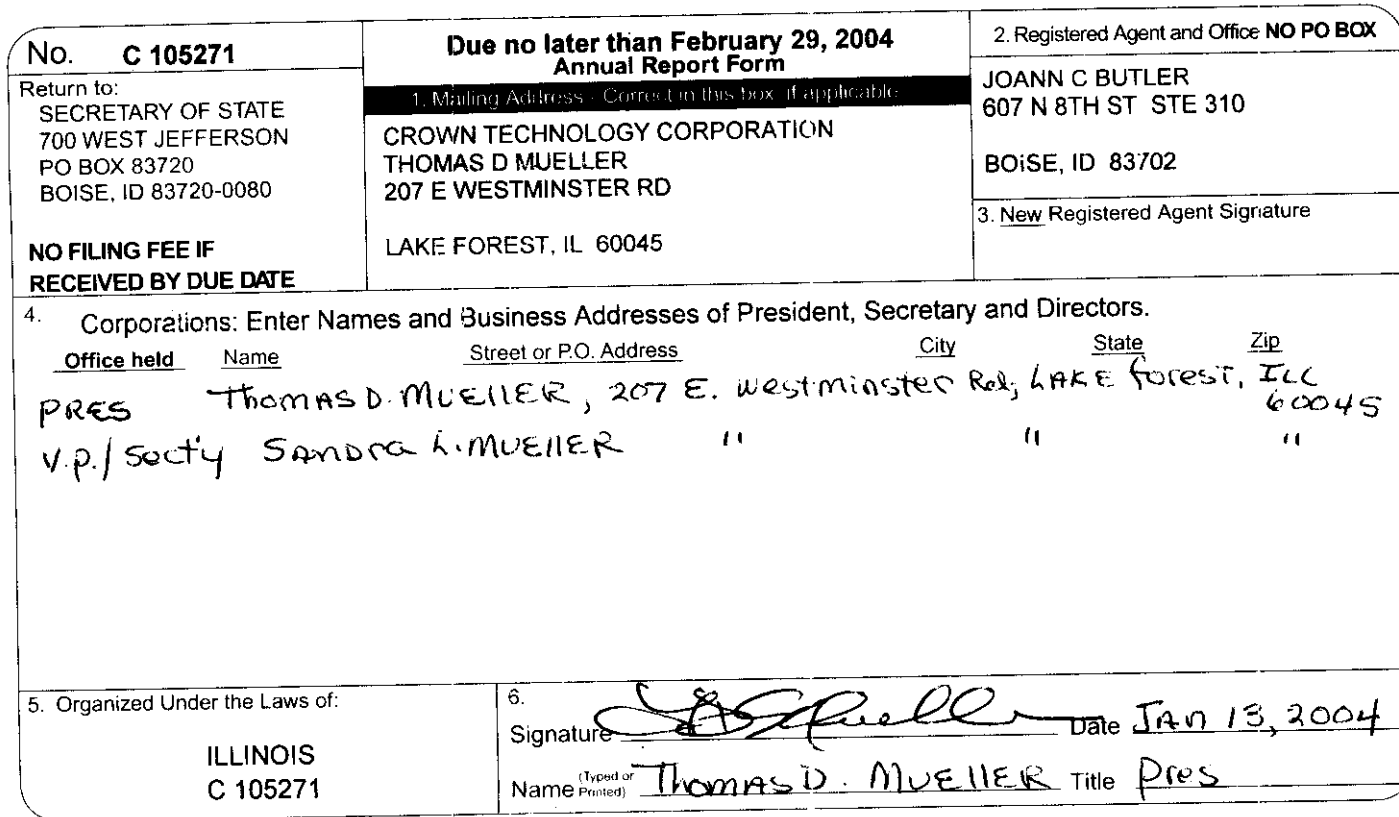 No. C 105271
Return to:
SECRETARY OF STATE
700 WEST JEFFERSON
PO BOX 83720
BOISE, ID 83720-0080
NO FILING FEE IF
RECEIVED BY DUE DATE
Due no later than February 29, 2004
Annual Report Form
1. Mailing Address - Correct in this box, if applicable
CROWN TECHNOLOGY CORPORATION
THOMAS D MUELLER
207 E WESTMINSTER RD
LAKE FOREST, IL 60045
2. Registered Agent and Office NO PO BOX
JOANN C BUTLER
607 N 8TH ST STE 310
BOISE, ID 83702
3. New Registered Agent Signature
4. Corporations: Enter Names and Business Addresses of President, Secretary and Directors.
Office held Name Street or P.O. Address City State Zip
PRES Thomas D. Mueller, 207 E. Westminster Rd, Lake Forest, Ill
60045
V.P./Sect'y Sandra L. Mueller " " "
5. Organized Under the Laws of:
ILLINOIS
C 105271
6.
Signature Date Jan 13, 2004
Name (Typed or Printed) Thomas D. Mueller Title Pres